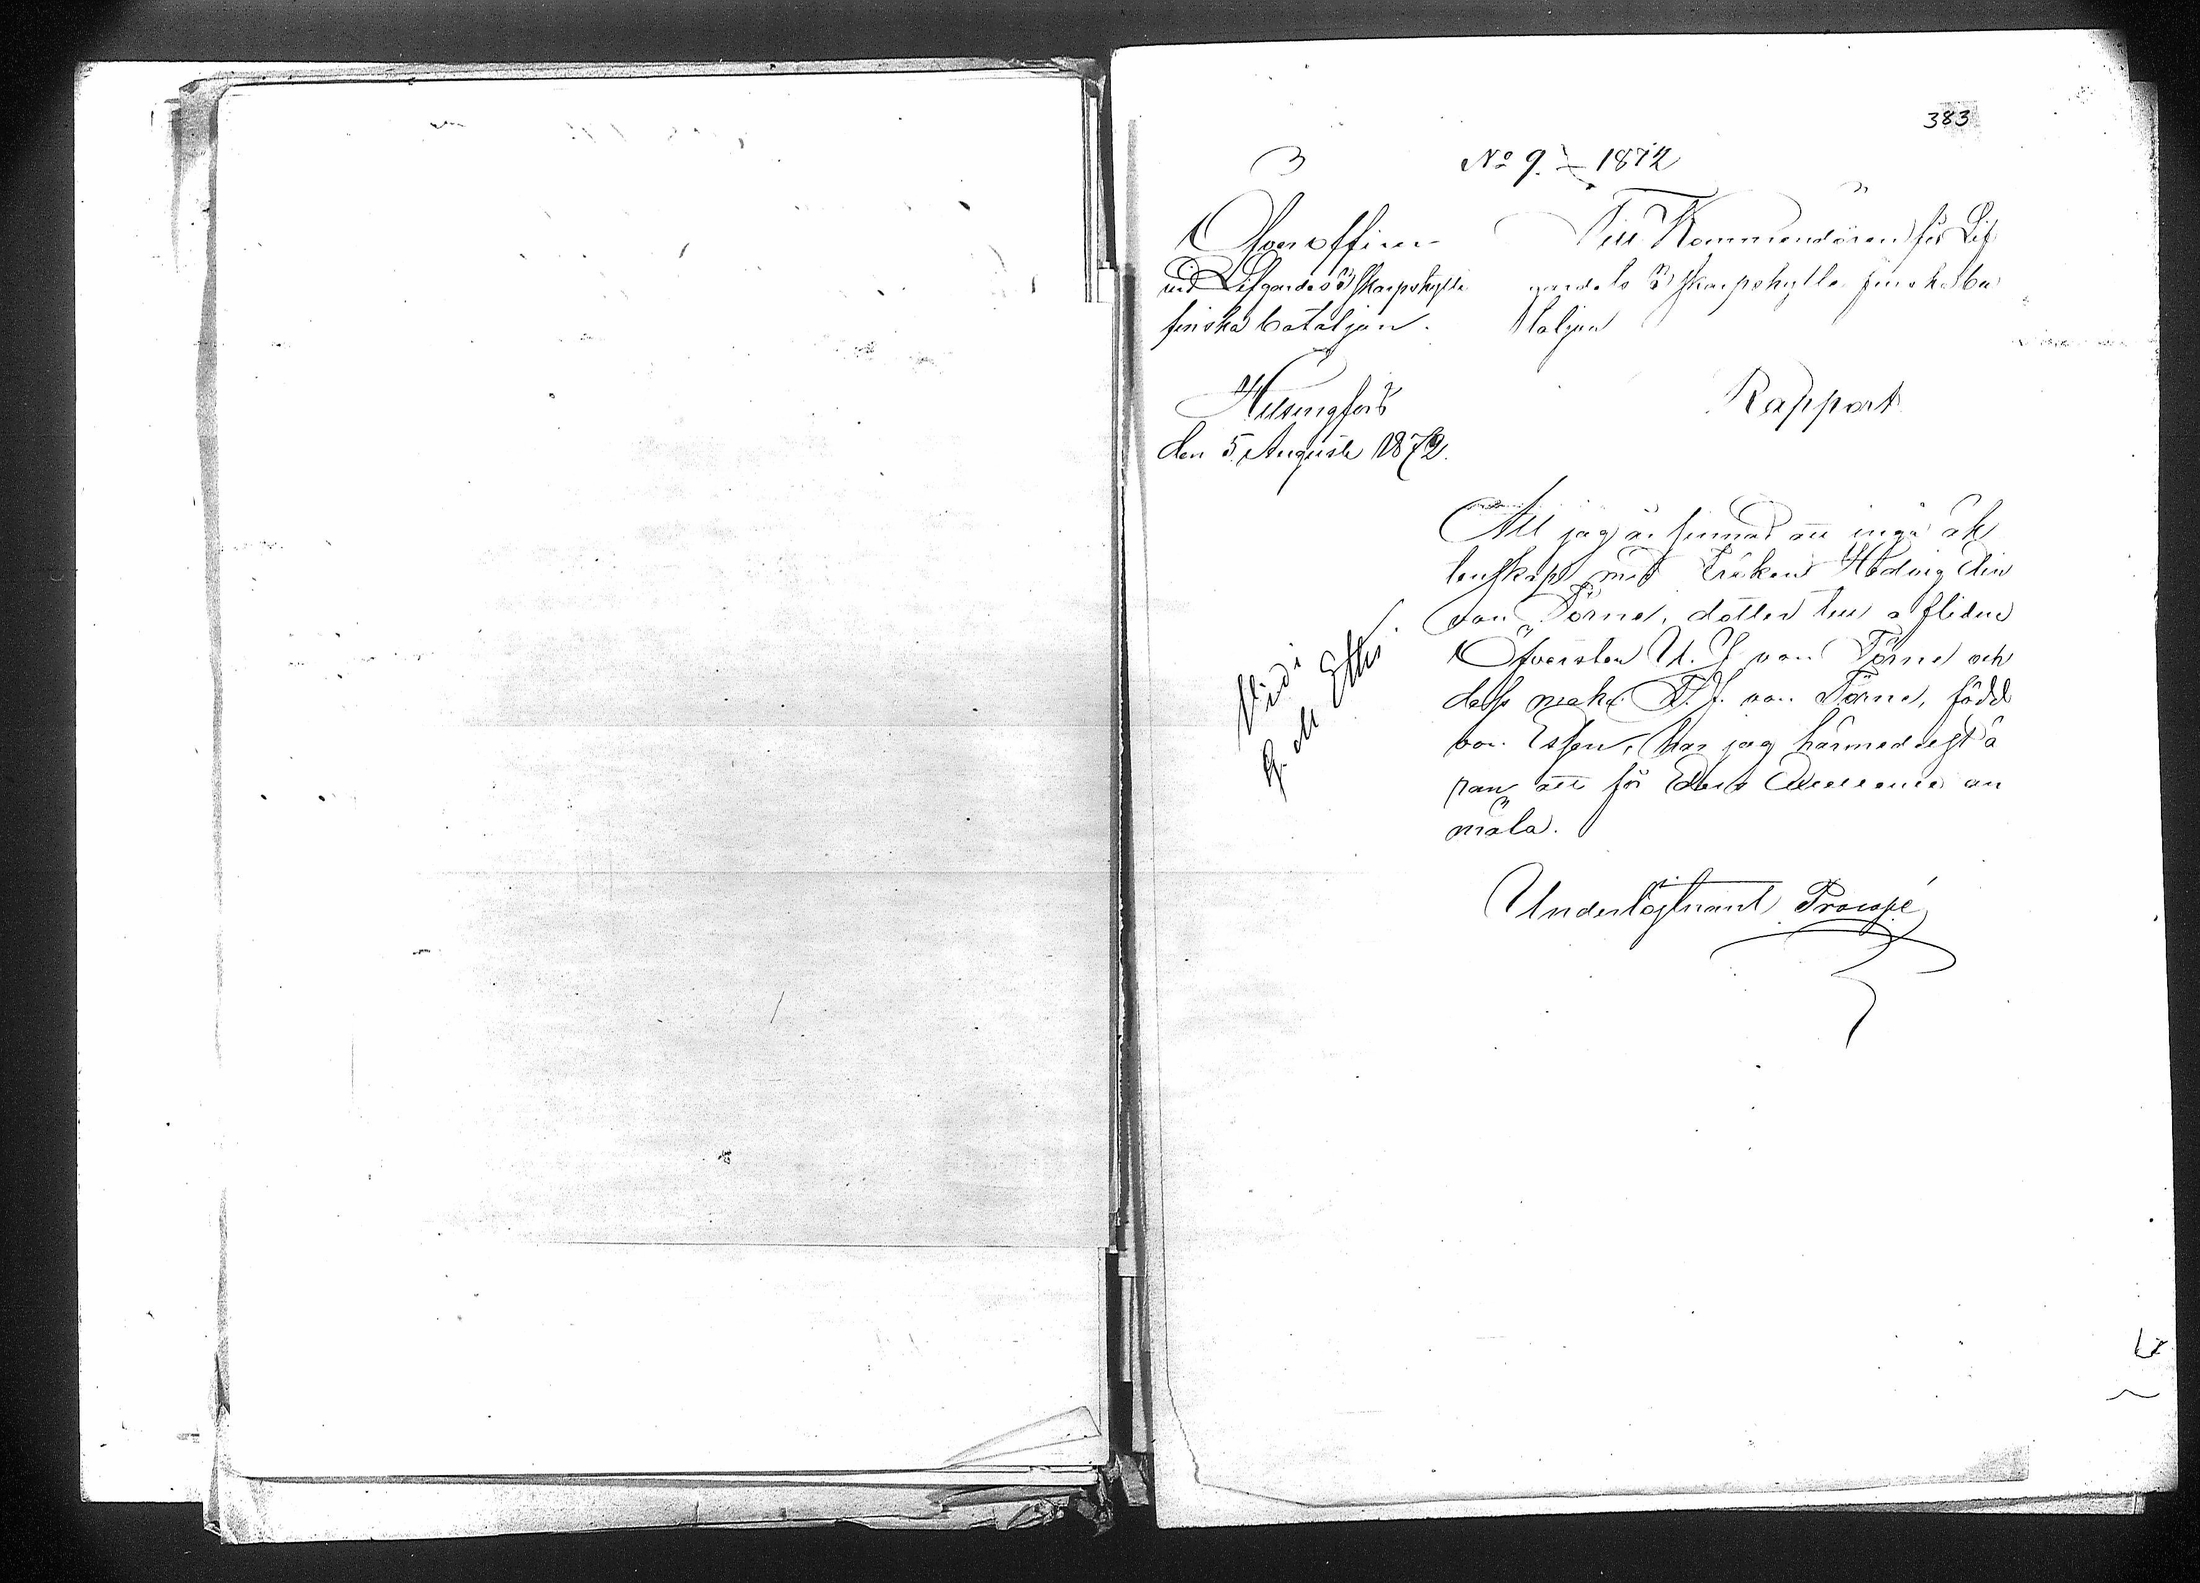 383
3
No 9. 1872
Öfverofficer
vid Lifgardets 3 Skarpskytte
finska bataljon.
Helsingfors
den 5 Augusti 1872.
Till Kommendören för Lif
gardets 3 Skarpskytte finska ba
taljon
Rapport
Att jag är sinnad att ingå äk
tenskap med Fröken Hedvig
von Törne, dotter till aflidne
Öfversten U. J. von Törne och
dess maka F. J. von Törne, född
von Essen, har jag härmedelst ä
ran att för Eders Excellence an
mäla.
Underlöjtnant Procopé
Vidi